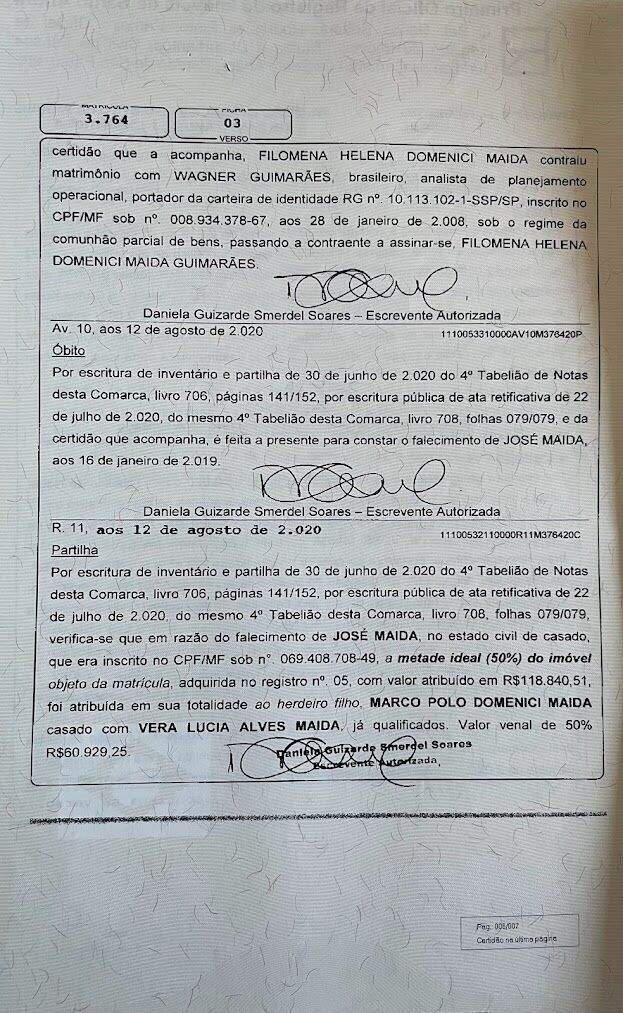 MATRÍCULA
3.764
FICHA
03
VERSO
certidão que a acompanha, FILOMENA HELENA DOMENICI MAIDA contraiu
matrimônio com WAGNER GUIMARÃES, brasileiro, analista de planejamento
operacional, portador da carteira de identidade RG nº. 10.113.102-1-SSP/SP, inscrito no
CPF/MF sob nº. 008.934.378-67, aos 28 de janeiro de 2.008, sob o regime da
comunhão parcial de bens, passando a contraente a assinar-se, FILOMENA HELENA
DOMENICI MAIDA GUIMARÃES.
Daniela Guizarde Smerdel Soares – Escrevente Autorizada
Av. 10, aos 12 de agosto de 2.020 1110053310000AV10M376420P
Óbito
Por escritura de inventário e partilha de 30 de junho de 2.020 do 4º Tabelião de Notas
desta Comarca, livro 706, páginas 141/152, por escritura pública de ata retificativa de 22
de julho de 2.020, do mesmo 4º Tabelião desta Comarca, livro 708, folhas 079/079, e da
certidão que acompanha, é feita a presente para constar o falecimento de JOSÉ MAIDA,
aos 16 de janeiro de 2.019.
Daniela Guizarde Smerdel Soares – Escrevente Autorizada
R. 11, aos 12 de agosto de 2.020 11100532110000R11M376420C
Partilha
Por escritura de inventário e partilha de 30 de junho de 2.020 do 4º Tabelião de Notas
desta Comarca, livro 706, páginas 141/152, por escritura pública de ata retificativa de 22
de julho de 2.020, do mesmo 4º Tabelião desta Comarca, livro 708, folhas 079/079,
verifica-se que em razão do falecimento de JOSÉ MAIDA, no estado civil de casado,
que era inscrito no CPF/MF sob n°. 069.408.708-49, a metade ideal (50%) do imóvel
objeto da matrícula, adquirida no registro nº. 05, com valor atribuído em R$118.840,51,
foi atribuída em sua totalidade ao herdeiro filho, MARCO POLO DOMENICI MAIDA
casado com VERA LUCIA ALVES MAIDA, já qualificados. Valor venal de 50%
R$60.929,25.
Daniela Guizarde Smerdel Soares
Escrevente Autorizada,
Pag.: 006/007
Certidão na última página